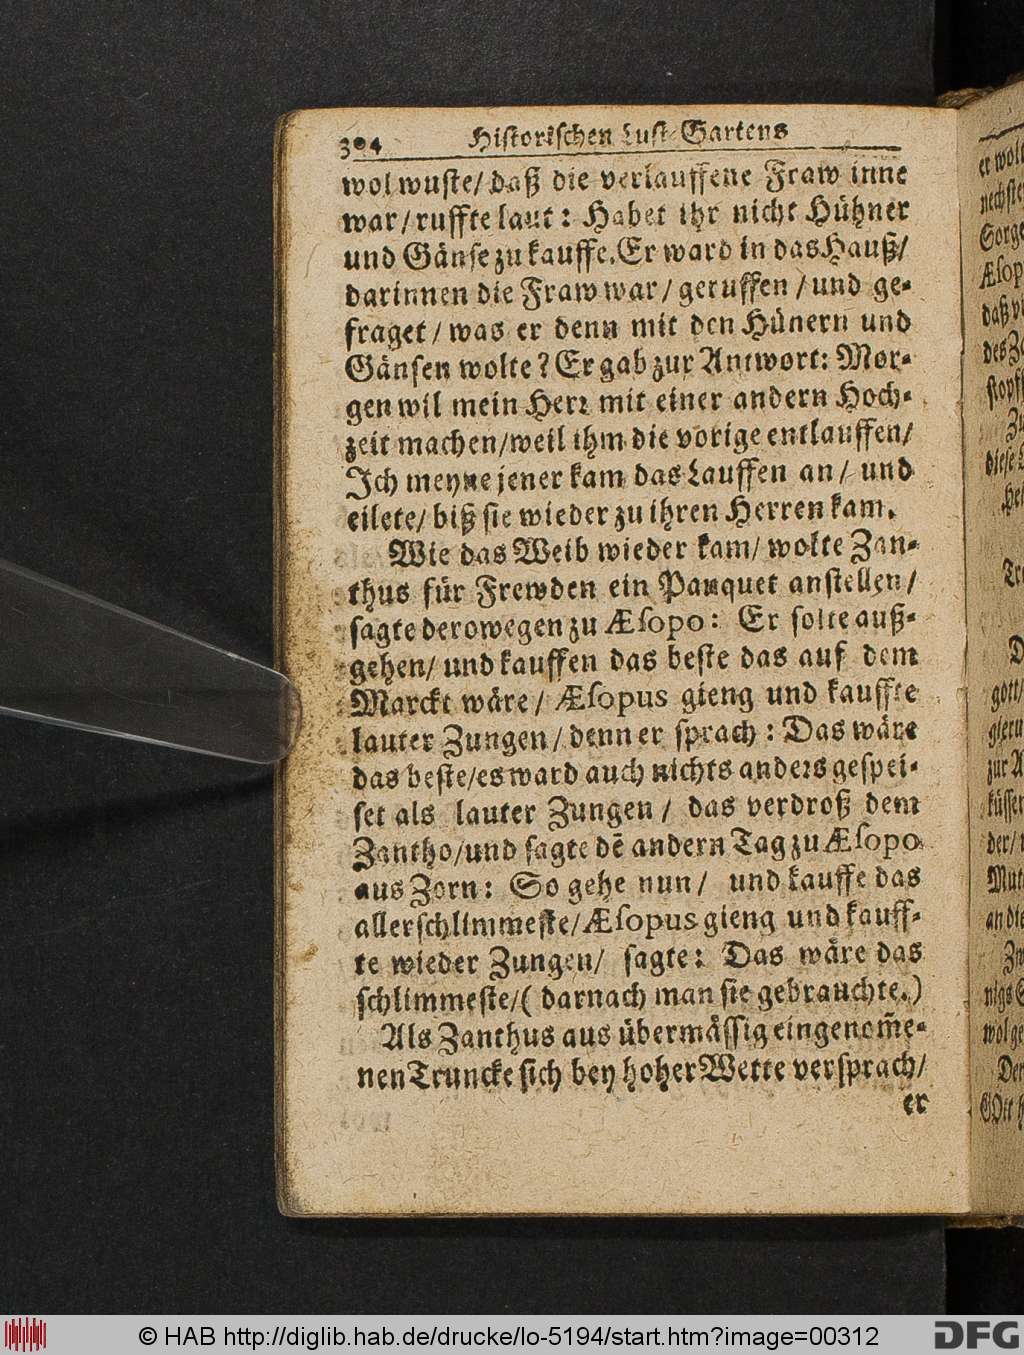 304 Historischen Lust-Gartens
wol wuste/ daß die verlauffene Fraw inne
war/ ruffte laut: Habet ihr nicht Hühner
und Gänse zu kauffe. Er ward in das Hauß/
darinnen die Fraw war/ geruffen/ und ge-
fraget/ was er denn mit den Hünern und
Gänsen wolte? Er gab zur Antwort: Mor-
gen wil mein Herr mit einer andern Hoch-
zeit machen/ weil ihm die vorige entlauffen/
Ich meyne jener kam das Lauffen an/ und
eilete/ biß sie wieder zu ihren Herren kam.
Wie das Weib wieder kam/ wolte Zan-
thus für Frewden ein Panquet anstellen/
sagte derowegen zu Æsopo: Er solte auß-
gehen/ und kauffen das beste das auf dem
Marckt wäre/ Æsopus gieng und kauffte
lauter Zungen/ denn er sprach: Das wäre
das beste/ es ward auch nichts anders gespei-
set als lauter Zungen/ das verdroß dem
Zantho/ und sagte dē andern Tag zu Æsopo
aus Zorn: So gehe nun/ und kauffe das
allerschlimmeste/ Æsopus gieng und kauff-
te wieder Zungen/ sagte: Das wäre das
schlimmeste/ (darnach man sie gebrauchte.)
Als Zanthus aus übermässig eingenom̄e-
nen Truncke sich bey hoher Wette versprach/
er
© HAB http://diglib.hab.de/drucke/lo-5194/start.htm?image=00312
DFG